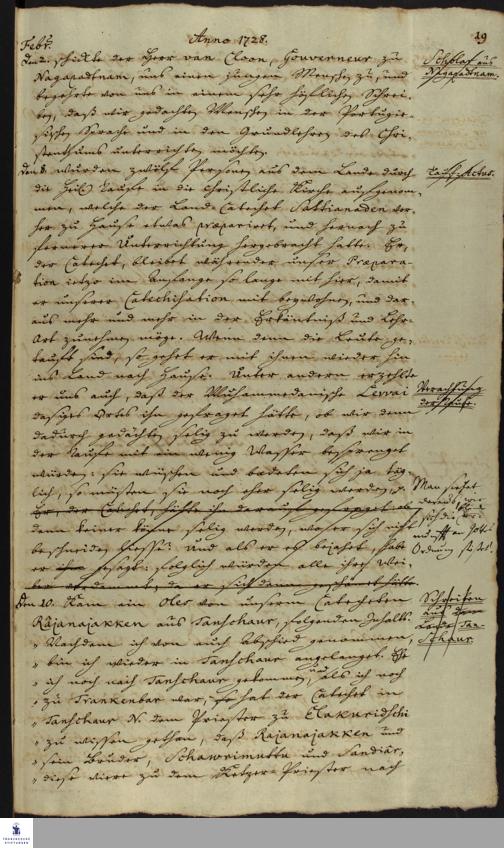 Anno 1728.
19
Febr.
den 2. schickte der Herr van Cloon, Gouverneur zu
Schlaf aus
Nagapadtnam.
Nagapadtnam, uns einen jungen Menschen zu, und
begehrte von uns in einem sehr höflichen Schrei-
ben, daß wir gedachten Menschen in der Portugie-
sischen Sprache und in den Grundlehren des Chri-
stenthums unterrichten möchten.
den 8. wurden zwölf Personen aus dem Lande durch
Tauf-Actus.
die Heil. Taufe in die Christliche Kirche aufgenom-
men, welche der Land-Catechet Sattianaden vor-
her zu Hause etwas præpariret, und hernach zu
fernerer Unterrichtung hergebracht hatte. Er,
der Catechet, bleibet währender unser Præpara-
tion ietzo im Anfange so lange mit hier, damit
er unserer Catechisation mit beywohnen, und dar-
aus mehr und mehr in der Erkäntniß und Lehr-
Art zunehmen möge. Wenn denn die Leute ge-
tauft sind, so gehet er mit ihnen wieder hin
ins Land nach Hause. Unter andern erzehlte
er uns auch, daß der Muhammedanische Lewai
Verachtung
der Taufe.
dasiges Ortes ihn gefraget hätte, ob wir denn
dadurch gedächten selig zu werden, daß wir in
der Taufe mit ein wenig Wasser besprenget
würden: sie wüschen und badeten sich ja täg-
lich, so müsten sie noch eher selig werden.
Man siehet
Er, der Catechet, hätte ihn darauf gefraget, ob
denn keiner könne selig werden, woher sich nicht
beschneiden liesse? Und als er es bejahet, habe
er gesagt: folglich würden alle ihre Wei-
Ordnung
den 10. Kam ein Oles von unserm Catecheten
Schreiben
Rajanajakken aus Tanschaur, folgenden Inhalts:
aus
Tan-
schaur.
„ Nachdem ich von euch Abschied genommen,
„ bin ich wieder in Tanschaur angelanget. Ehe
„ ich noch nach Tanschaur gekommen, und als ich noch
„ zu Trankenbar war, hat der Catechet in
„ Tanschaur N. dem Priester zu Elakuridschi
„ zu wissen gethan, daß Rajanajakken und
„ sein Bruder, Schawrimuttu und Sandiar,
„ diese viere zu dem Ketzer-Priester nach
FRANCKESCHE
STIFTUNGEN